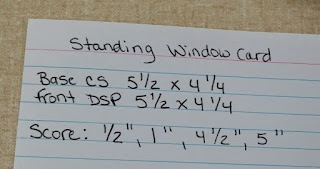 Standing Window Card
Base CS 5 1/2 x 4 1/4
front DSP 5 1/2 x 4 1/4
Score: 1/2", 1", 4 1/2", 5"